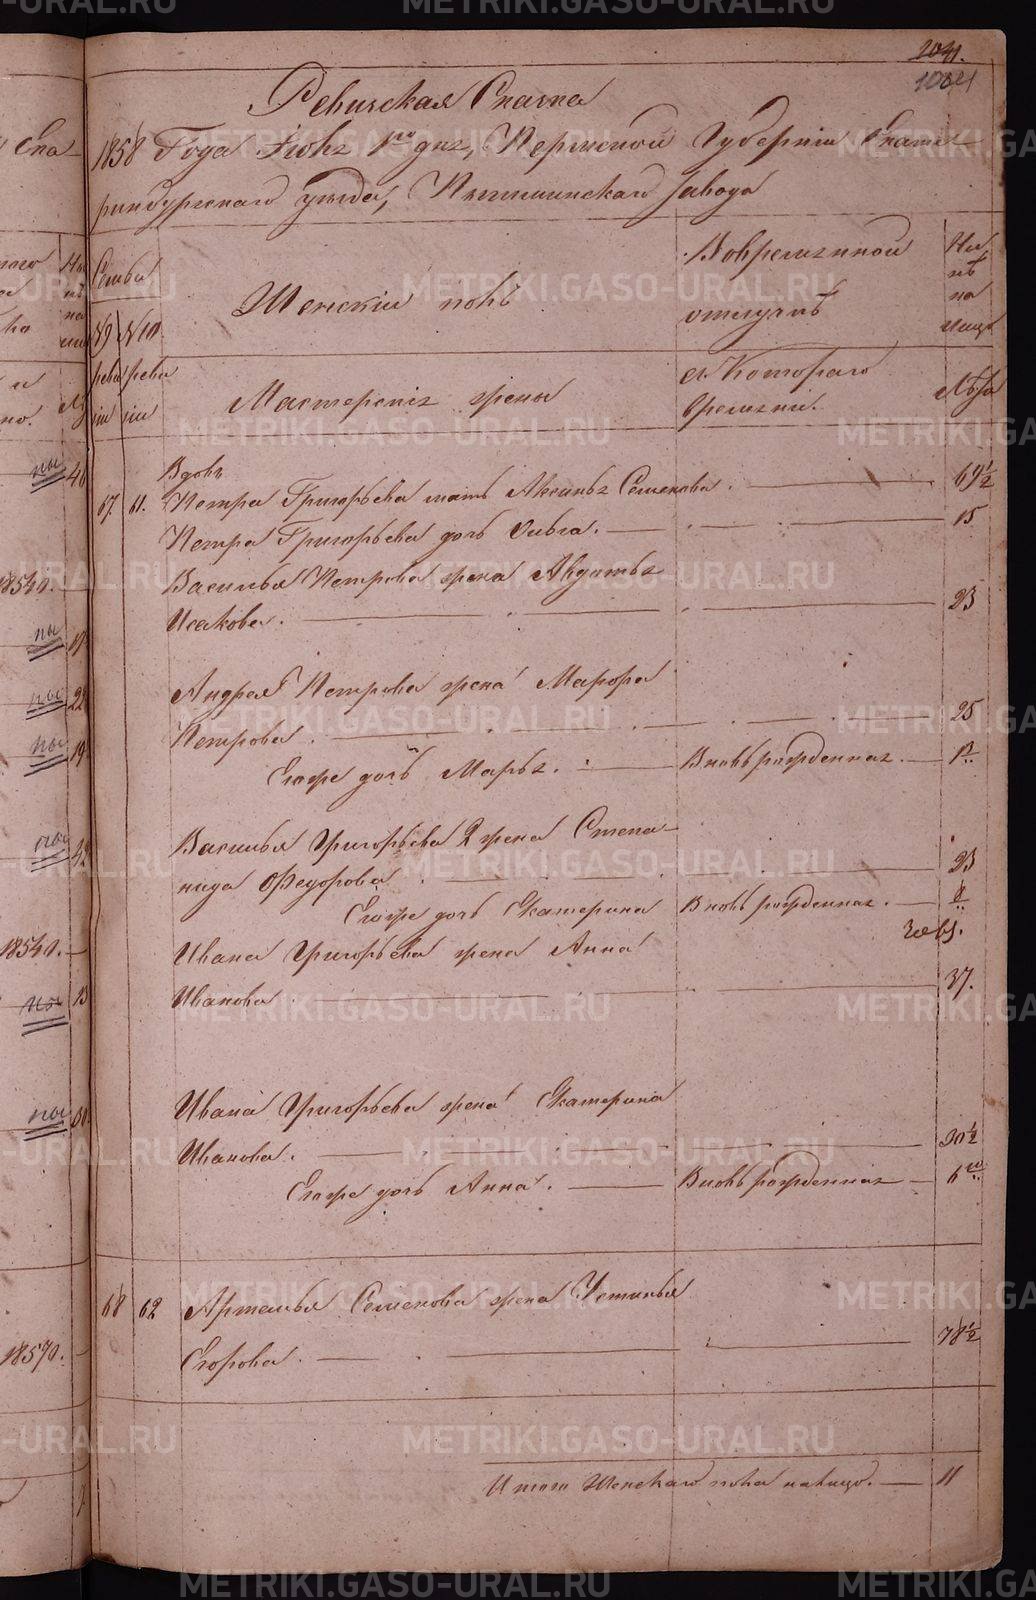 1004
Ревизская Сказка
1858 Года Июня 1го дня, Пермской Губернии Екате-
ринбургского уезда, Пышминскаго завода
Семьи
№9 реви зіи
№10 реви зіи
Женскій полъ
Вовременной
отлучкѣ
Мастерскіе жены
съ котораго
времяни.
На
лицо
Лѣта
Вдовы
67. 61. Петра Григорьева мать Аксинья Семенова. 69½
Петра Григорьева дочь Ольга. 15
Василья Петрова жена Авдотья
Исакова. 23
Андрея Петрова жена Марфа
Петрова. 25
Ее же дочь Марья. Вновь рожденная.
Василья Григорьева 2 жена Степа-
нида Федорова. 23
Ее же дочь Екатерина Вновь рожденная.
Ивана Григорьева жена Анна
Иванова. 37.
Ивана Григорьева жена Екатерина
Иванова. 30½
Ее же дочь Анна. Вновь рожденная
68 62 Артемья Семенова жена Устинья
Егорова. 78½
Итого Женскаго пола налицо. 11
METRIKI.GASO-URAL.RU